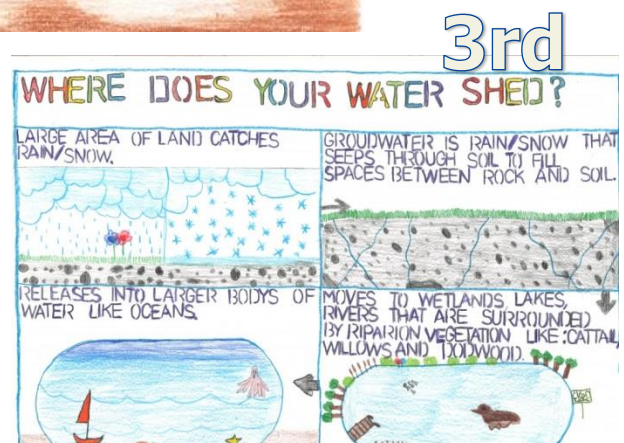 3rd
WHERE DOES YOUR WATER SHED?
LARGE AREA OF LAND CATCHES
RAIN/SNOW.
GROUDWATER IS RAIN/SNOW THAT
SEEPS THROUGH SOIL TO FILL
SPACES BETWEEN ROCK AND SOIL.
RELEASES INTO LARGER BODYS OF
WATER LIKE OCEANS.
MOVES TO WETLANDS, LAKES,
RIVERS THAT ARE SURROUNDED
BY RIPARION VEGETATION LIKE:CATTAIL,
WILLOWS AND DODWOOD.